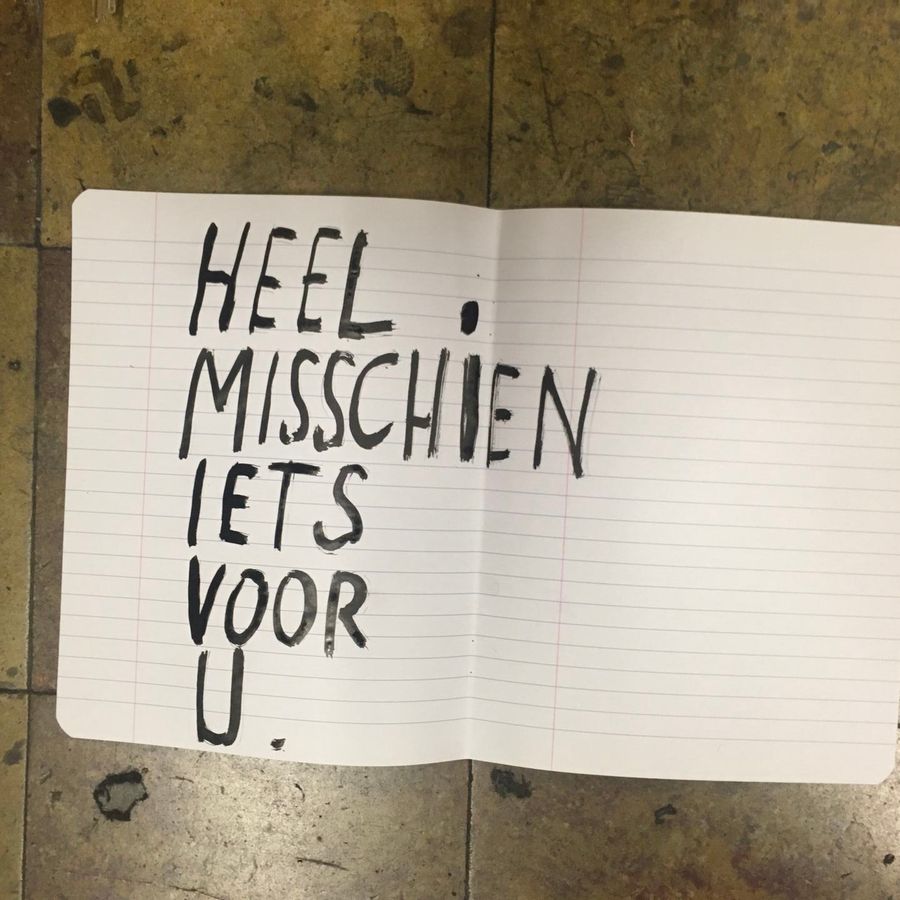 HEEL
MISSCHiEN
IETS
VOOR
U.